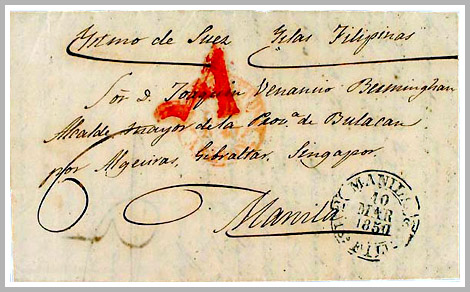 Istmo de Suez Yslas Filipinas
A
Sõr D. Joaquin Venancio Bermingham
Alcalde mayor de la Prov.ª de Bulacan
por Algeciras, Gibraltar, Singapor.
Manila
MANILA
10
MAR
1850